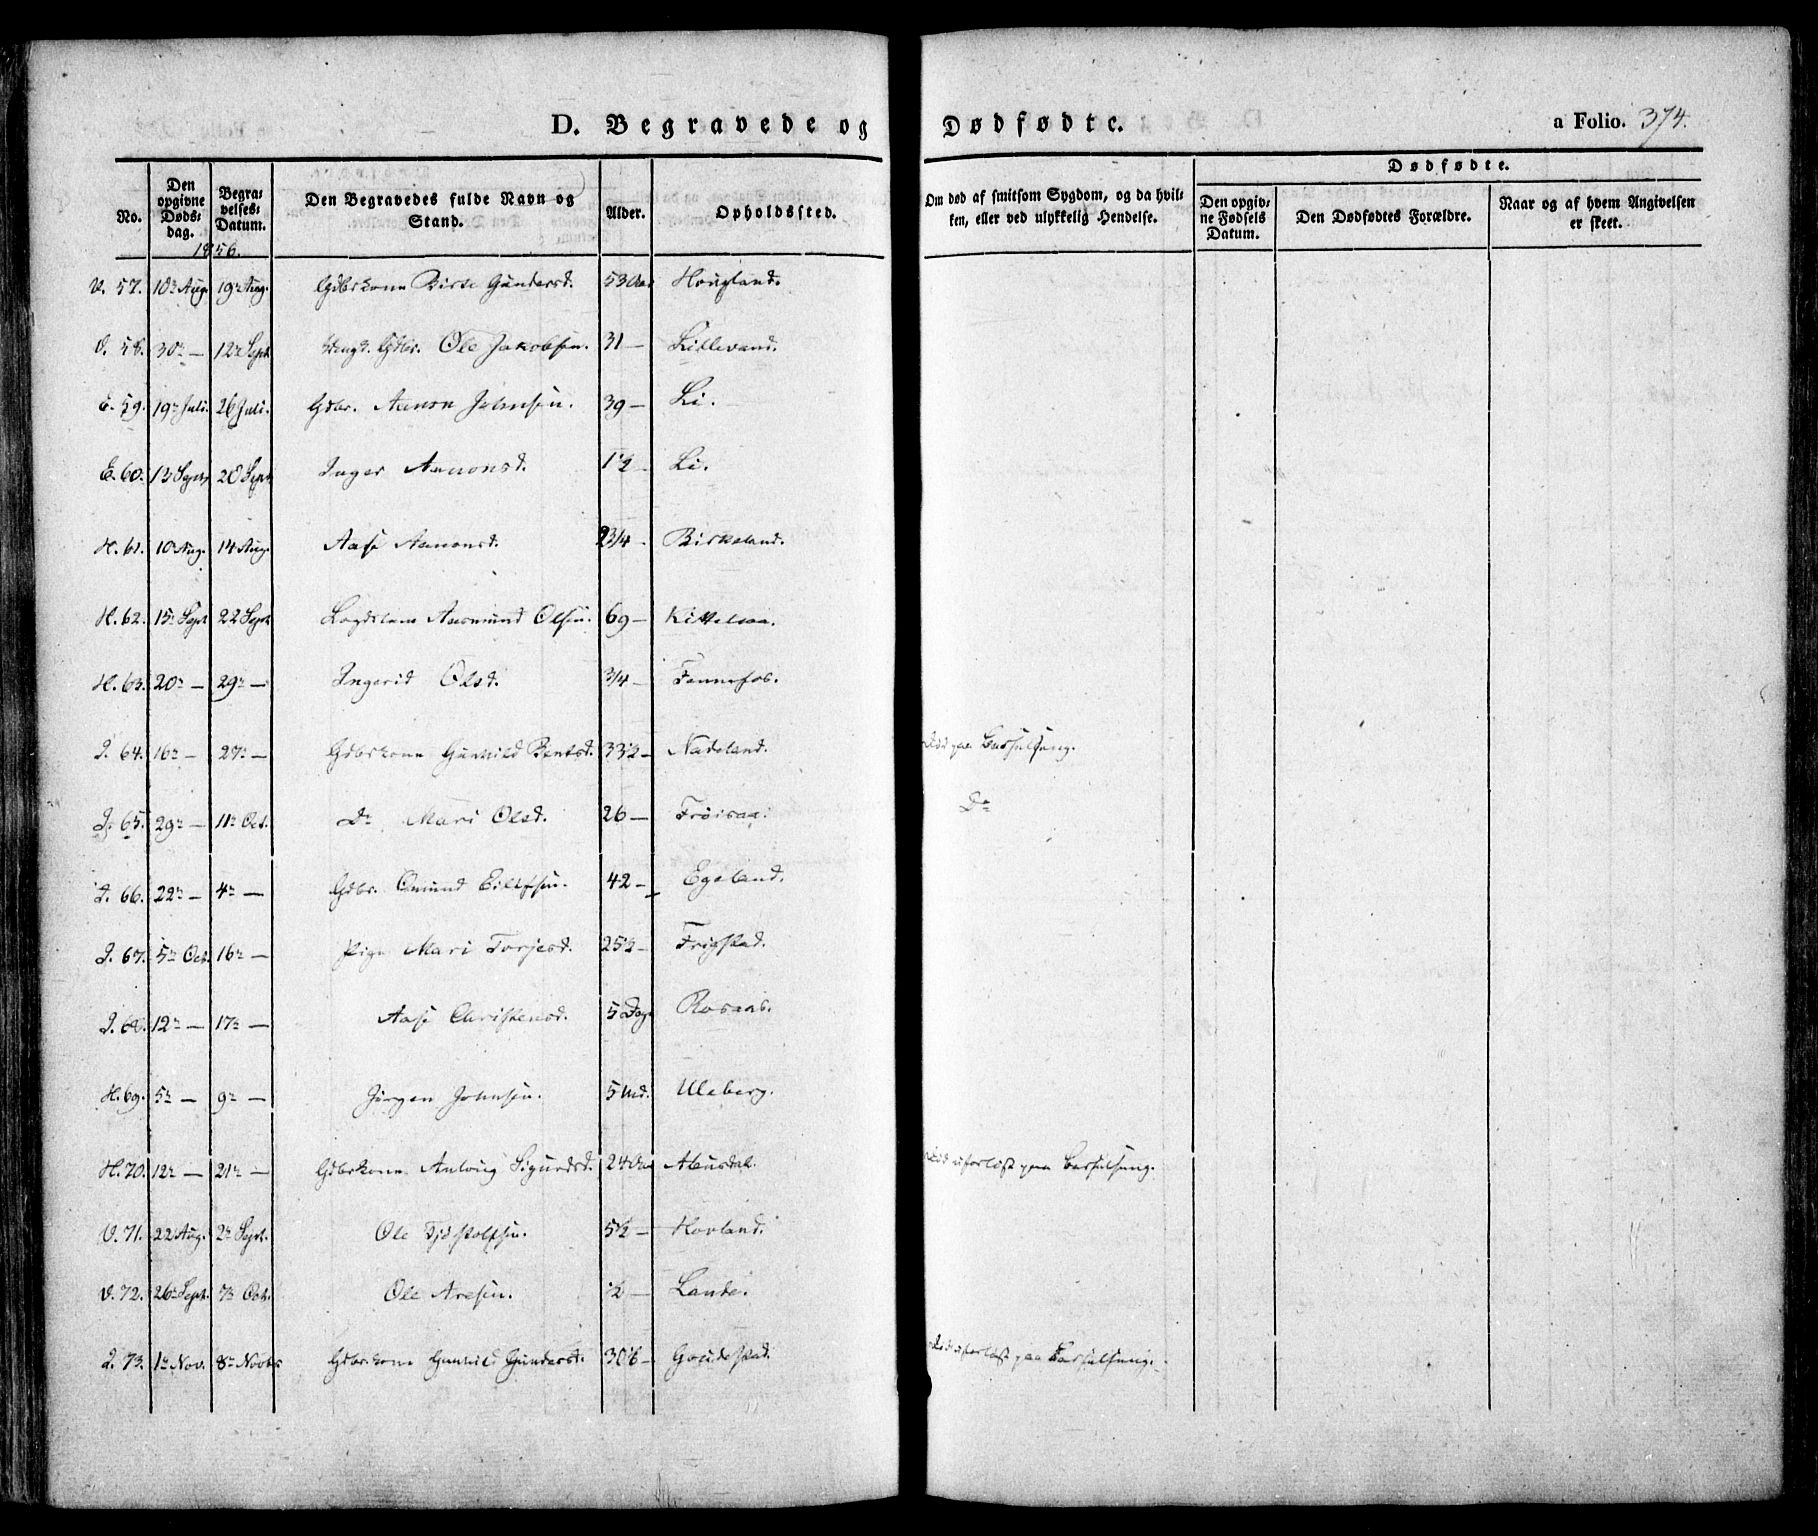 D. Begravede og Dødfødte. a Folio. 374.
No. | Den opgivne Døds-dag. | Begra-velses-Datum. | Den Begravedes fulde Navn og Stand. | Alder. | Opholdssted. | Om død af smitsom Sygdom, og da hvil-ken, eller ved ulykkelig Hendelse. | Dødfødte. | Den opgiv-ne Fødsels Datum. | Den Dødfødtes Forældre. | Naar og af hvem Angivelsen er skeet.
1856.
V. 57. 10de Aug. 19de Aug. Gdbrkone Birte Gundersd. 53 Aar Hougland.
V. 58. 30te — 12te Sept. Gdbr. Ole Jakobsen. 31 — Lillevand.
E. 59. 19de Juli. 26 Juli. Gdbr. Aanon Johnsen. 39 — Li.
E. 60. 13 Sept. 20 Sept. Inger Aanonsd. 1½ — Li.
H. 61. 10 Aug. 14 Aug. Aase Aanonsd. 2 3/4 — Birkeland.
H. 62. 15de Sept. 22 Sept. Aasmund Olsen. 69 — Kittelsaa.
H. 63. 20de — 29de — Ingerid Olsd. 3/4 — Fennefos.
I. 64. 16de — 27de — Gdbrkone Gunhild Bentsd. 33½ — Nadeland. Død paa Barselseng.
I. 65. 29de — 11te Oct. Do Mari Olsd. 26 — Frøisaa. Do
I. 66. 22de — 4de — Gdbr. Omund Eilefsen. 42 — Egeland.
I. 67. 5te Oct. 16de — Pige Mari Torjesd. 25½ — Frigstad.
I. 68. 12te — 17de — Aase Christensd. 5 Dage Rosaas.
H. 69. 5te — 9de — Jørgen Johnsen. 5 Md. Uleberg.
H. 70. 12te — 21de — Gdbrkone Anlaug Sigurdsd. 24 Aar Abusdal. Død uforløst paa Barselseng.
V. 71. 22 Aug. 2de Sept. Ole Tjøstolfsen. 5½ — Hovland.
V. 72. 26de Sept. 7de Oct. Ole Aresen. ½ — Lande.
I. 73. 1te Nov. 8de Novbr Gdbrkone Gunhild Gundersd. 30⅙ — Goudestad. Død uforløst paa Barselseng.